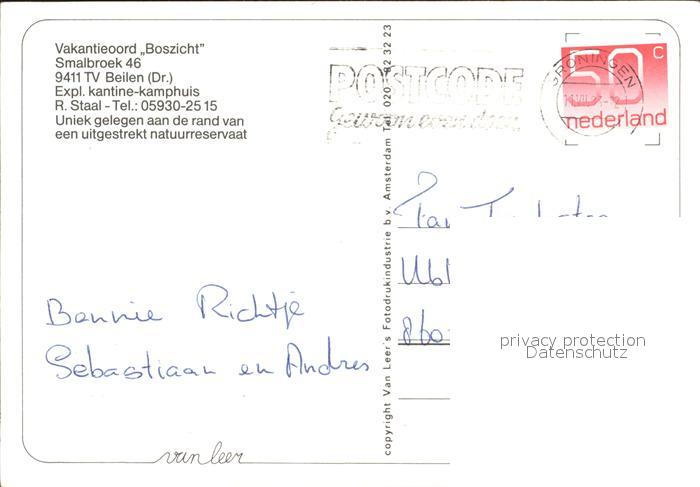 Vakantieoord „Boszicht"
Smalbroek 46
9411 TV Beilen (Dr.)
Expl. kantine-kamphuis
R. Staal - Tel.: 05930-25 15
Uniek gelegen aan de rand van
een uitgestrekt natuurreservaat
POSTCODE
Gewoon even doen
GRONINGEN
50 C
nederland
copyright Van Leer's Fotodrukindustrie b.v. Amsterdam Tel. 020 - 82 32 23
Bennie Richtje
Sebastiaan en Andres
privacy protection
Datenschutz
van leer